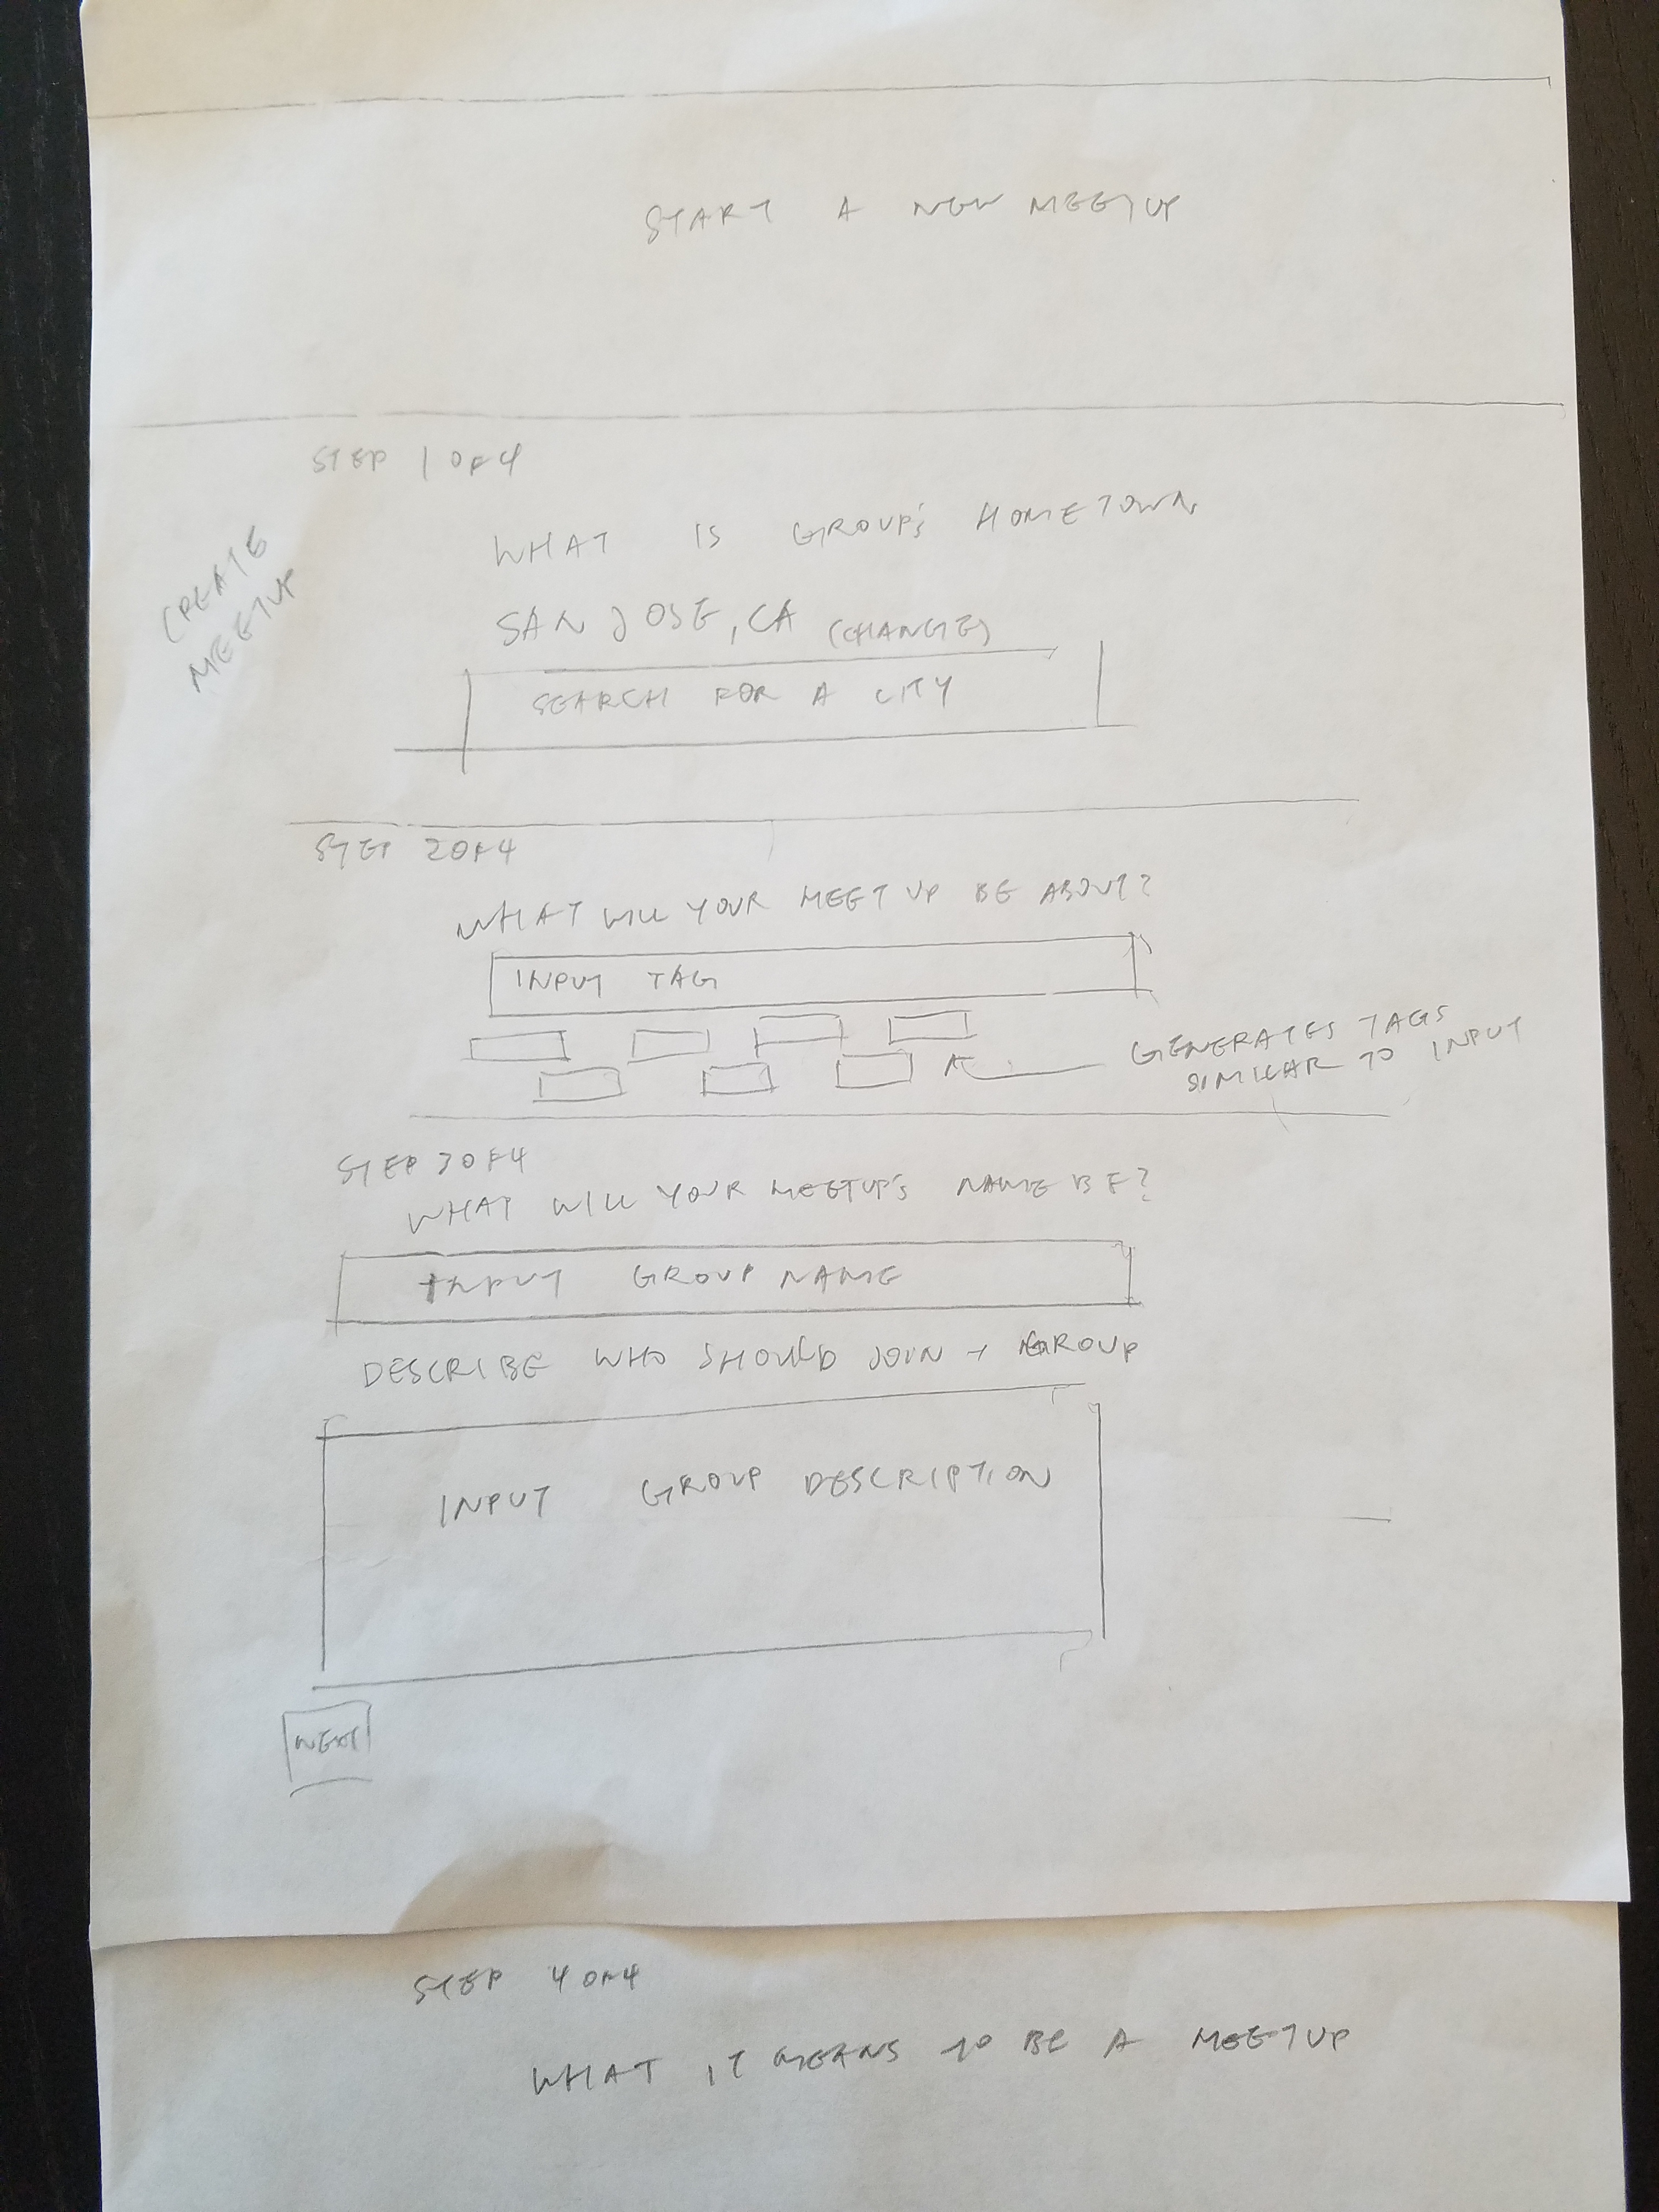 START A NEW MEETUP
STEP 1 OF 4
CREATE
MEETUP
WHAT IS GROUP'S HOMETOWN
SAN JOSE, CA (CHANGE)
SEARCH FOR A CITY
STEP 2 OF 4
WHAT WILL YOUR MEETUP BE ABOUT?
INPUT TAG
GENERATES TAGS
SIMILAR TO INPUT
STEP 3 OF 4
WHAT WILL YOUR MEETUP'S NAME BE?
INPUT GROUP NAME
DESCRIBE WHO SHOULD JOIN + GROUP
INPUT GROUP DESCRIPTION
NEXT
STEP 4 OF 4
WHAT IT MEANS TO BE A MEETUP